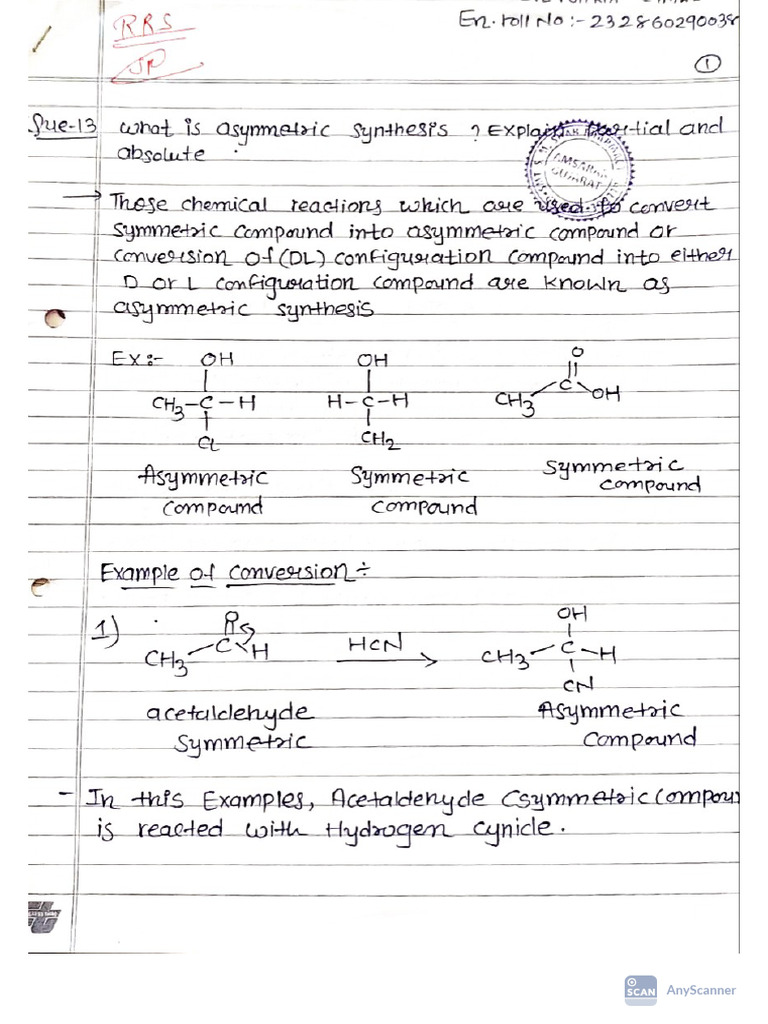 RRS
JP
En. roll No :- 232860290038
1
Que-13 What is asymmetric synthesis ? Explain Partial and
absolute .
→ Those chemical reactions which are used to convert
symmetric compound into asymmetric compound or
conversion of (DL) configuration compound into either
D or L configuration compound are known as
asymmetric synthesis
Ex:- OH OH O
CH3-C-H H-C-H CH3 C OH
Cl CH2
Asymmetric Symmetric Symmetric
compound compound compound
Example of conversion ÷
1) CH3 C H HCN CH3-C-H
O OH
CN
acetaldehyde Asymmetric
Symmetric compound
- In this Examples, Acetaldehyde Csymmetric compou
is reacted with Hydrogen cynicle.
SCAN AnyScanner